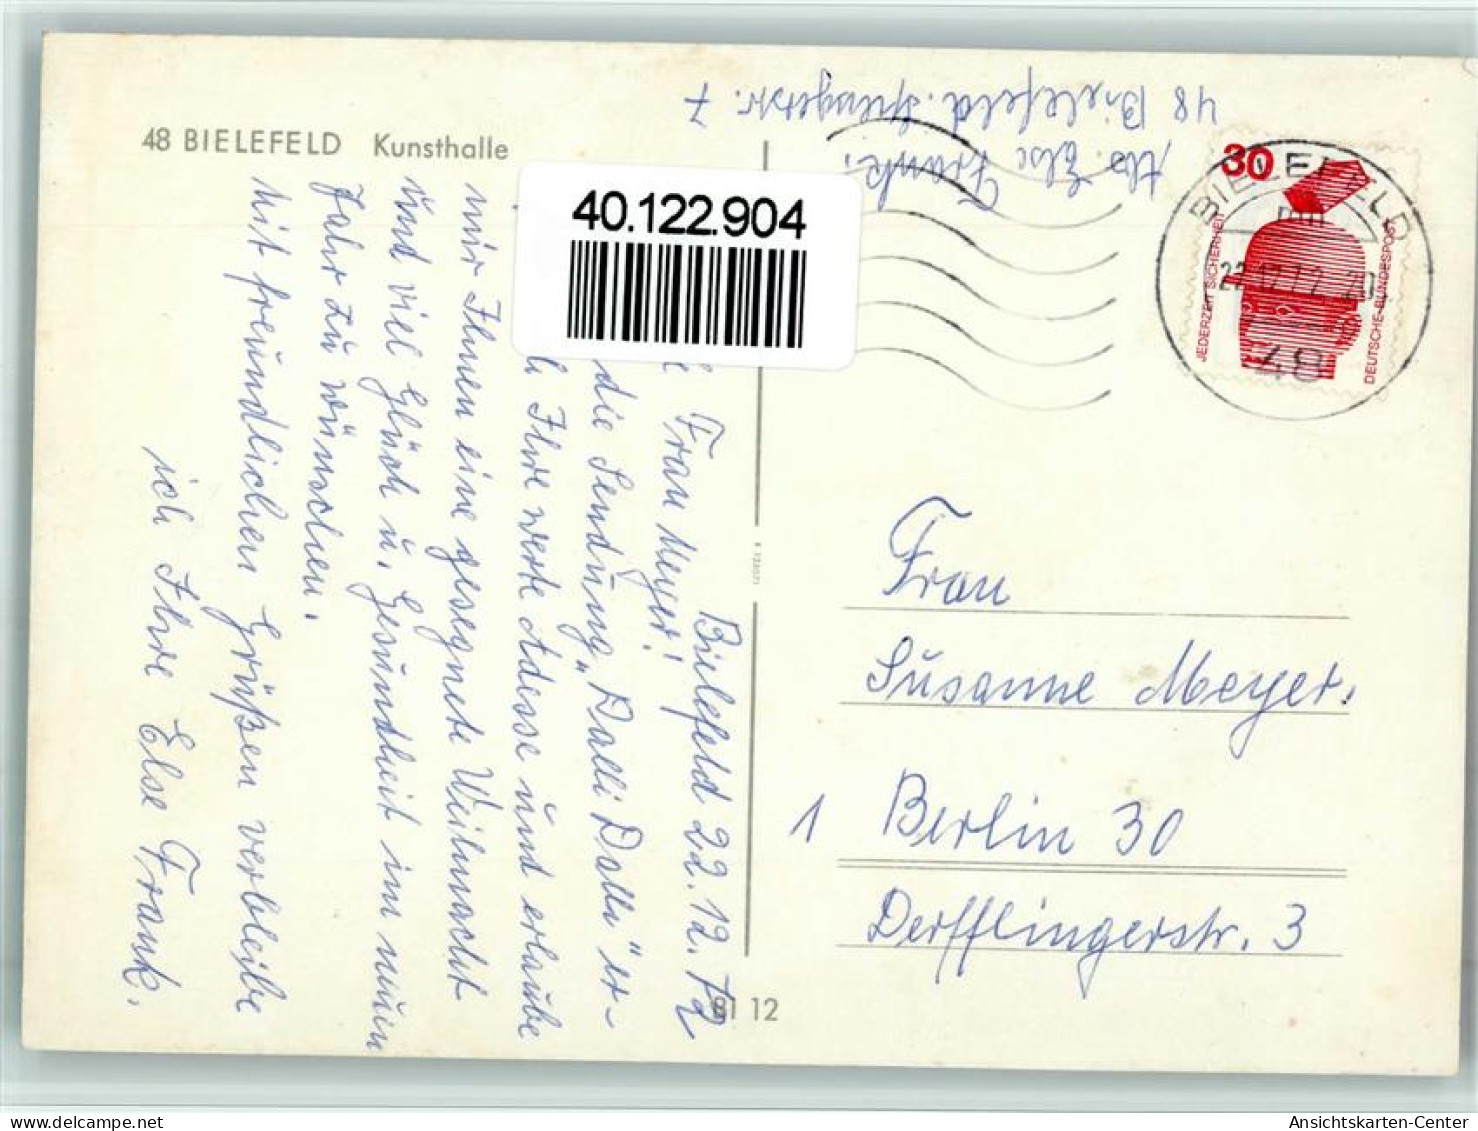 48 BIELEFELD Kunsthalle
Abs. Else Frank.
48 Bielefeld. 7
40.122.904
30
JEDERZEIT SICHERHEIT
DEUTSCHE BUNDESPOST
BIELEFELD
22.12.72-20
48
Bielefeld 22.12.72
Frau Meyer!
die Sendung „Dalli Dalli" er-
Ihre werte Adesse und erlaube
mir Ihnen eine gesegnete Weihnacht
und viel Glück u. Gesundheit im neuen
Jahr zu wünschen.
Mit freundlichen Grüßen verbleibe
ich Ihre Else Frank.
Frau
Susanne Meyer.
1 Berlin 30
Derfflingerstr. 3
BI 12
Ansichtskarten-Center